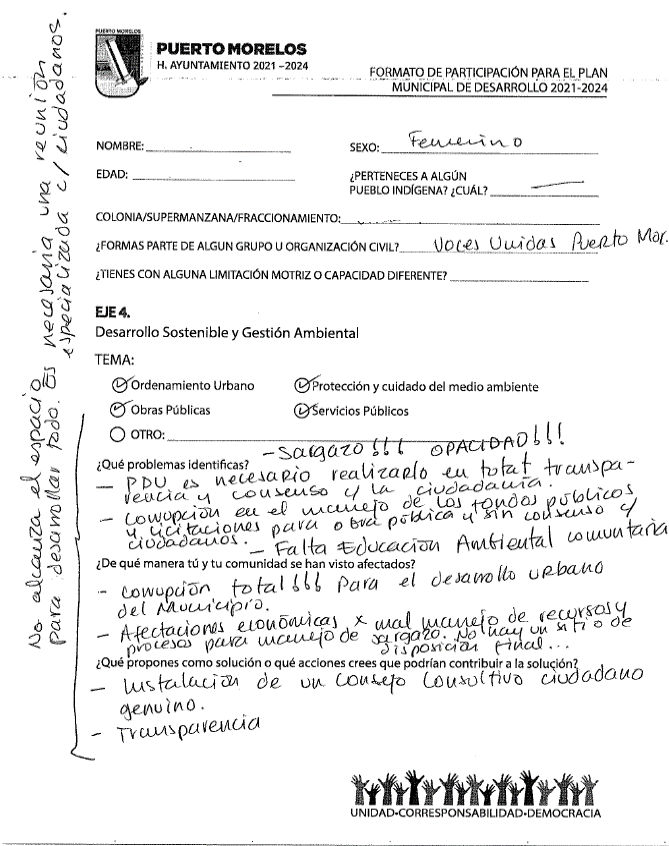 PUERTO MORELOS
H. AYUNTAMIENTO 2021 -2024
FORMATO DE PARTICIPACIÓN PARA EL PLAN
MUNICIPAL DE DESARROLLO 2021-2024
NOMBRE:
SEXO: Femenino
EDAD:
¿PERTENECES A ALGÚN
PUEBLO INDÍGENA? ¿CUÁL?
COLONIA/SUPERMANZANA/FRACCIONAMIENTO:
¿FORMAS PARTE DE ALGUN GRUPO U ORGANIZACIÓN CIVIL? Voces Unidas Puerto Mor.
¿TIENES CON ALGUNA LIMITACIÓN MOTRIZ O CAPACIDAD DIFERENTE?
EJE 4.
Desarrollo Sostenible y Gestión Ambiental
TEMA:
Ordenamiento Urbano
Protección y cuidado del medio ambiente
Obras Públicas
Servicios Públicos
OTRO:
- Sargazo!!! OPACIDAD!!!
¿Qué problemas identificas?
- PDU es necesario realizarlo en total transpa-
rencia y consenso c/ la ciudadanía.
- Corrupción en el manejo de los fondos públicos
y licitaciones para obra pública y sin consenso c/
ciudadanos.
- Falta Educación Ambiental comunitaria
¿De qué manera tú y tu comunidad se han visto afectados?
- Corrupción total!!! Para el desarrollo urbano
del Municipio.
- Afectaciones económicas x mal manejo de recursos y
procesos para manejo de sargazo. No hay un sitio de
disposición final...
¿Qué propones como solución o qué acciones crees que podrían contribuir a la solución?
- Instalación de un Consejo Consultivo ciudadano
genuino.
- Transparencia
No alcanza el espacio
para desarrollar todo. Es necesaria una reunión
especializada c/ ciudadanos.
UNIDAD•CORRESPONSABILIDAD•DEMOCRACIA